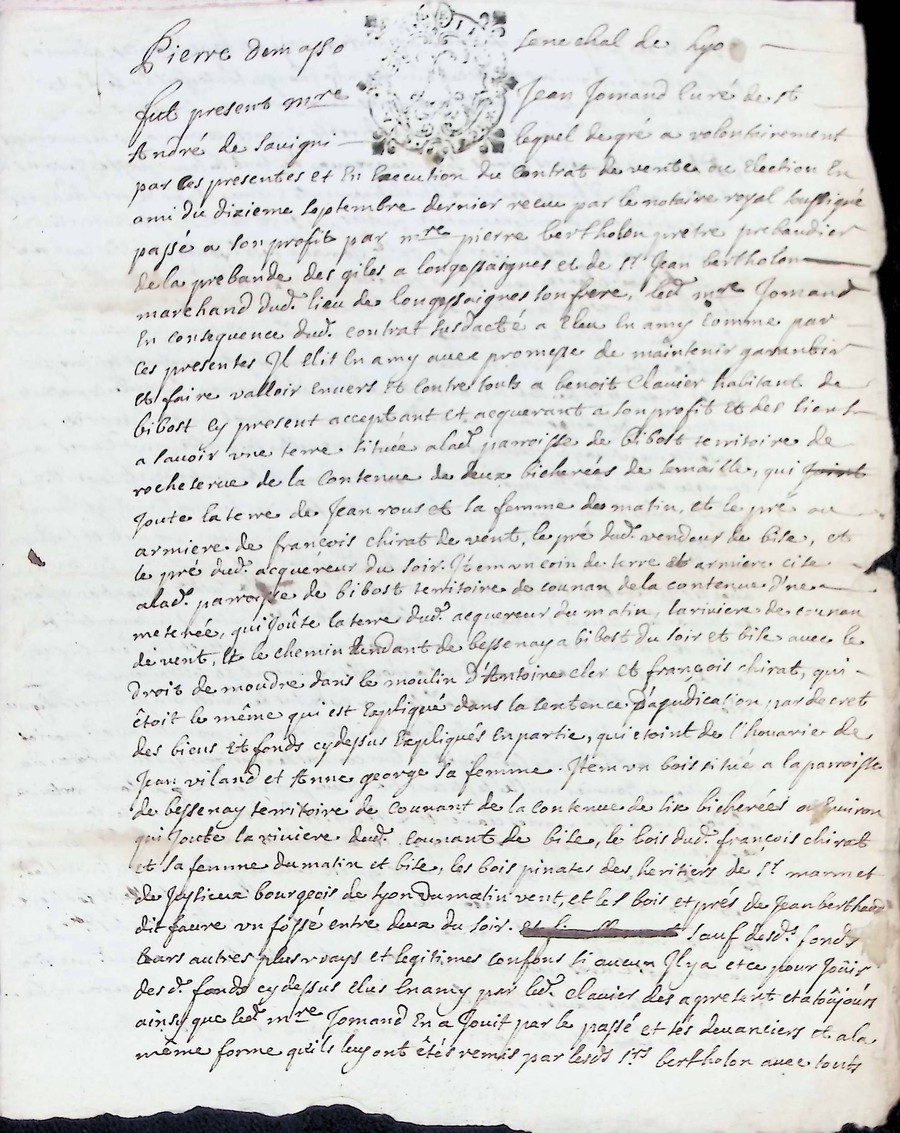 Pierre demasso senechal de Lyo
fut present mre Jean Jomand Curé de st
André de Savigni lequel de gré a volontairement
par Ces presentes et En Execution du Contrat de vente ou Election En
ami du dixieme Septembre dernier recue par le notaire royal soussigné
passé a son profit par mre pierre bertholon pretre prebandier
de la prebande des giles a longessaignes et de sr Jean bertholon
marchand dud. lieu de longessaignes son frere, led. mre Jomand
En consequence dud. contrat susdacté a Eleu En amy Comme par
Ces presentes Il Elit En amy avec promesse de maintenir garantir
Et faire valloir Envers Et Contre touts a benoit Clavier habitant de
bibost Cy present acceptant et acquerant a son profit Et des siens
a savoir vne terre située a lad. parroisse de bibost territoire de
rocheserve de la Contenue de deux bicherées de semaille, qui joint
Joute la terre de Jean rous et la femme de matin, et le pré ou
armiere de françois chirat de vent, le pré dud. vendeur de bise, et
le pré dud. acquéreur du soir. Item un coin de terre et armiere cise
a lad. parroisse de bibost territoire de counan de la contenue d'ne
meterée, qui Joûte la terre dud. acquereur du matin, la riviere de counan
de vent, Et le chemin tendant de bessenay a bibost du soir et bise avec le
Droit de moudre dans le moulin d'Antoine cler et françois chirat, qui
êtoit le même qui est Expliqué dans la sentence d'ajudication par decret
des biens Et fonds cy dessus Expliqués En partie, qui etoint de l'houarie de
Jean viland et Anne george sa femme. Item vn bois situé a la parroisse
de bessenay territoire de Counant de la contenue de six bicherées ou Environ
qui Joute la riviere dud. Counant de bise, le bois dud. françois chirat
et sa femme du matin et bise, les bois pinates des heritiers de sr marmet
de Jussieux bourgeois de Lyon du matin vent, et les bois et prés de Jean berthaud
dit faure vn fossé entre deux du soir. sauf desd. fonds
leurs autres plus vrays et legitimes confins si aucun Il y a et ce pour Joüir
des d. fonds cy dessus elus En amy par led. Clavier des a present et a toûjours
ainsy que led. mre Jomand En a Jouit par le passé et ses devanciers et a la
même forme qu'ils luy ont êtés remis par lesds srs bertholon avec touts